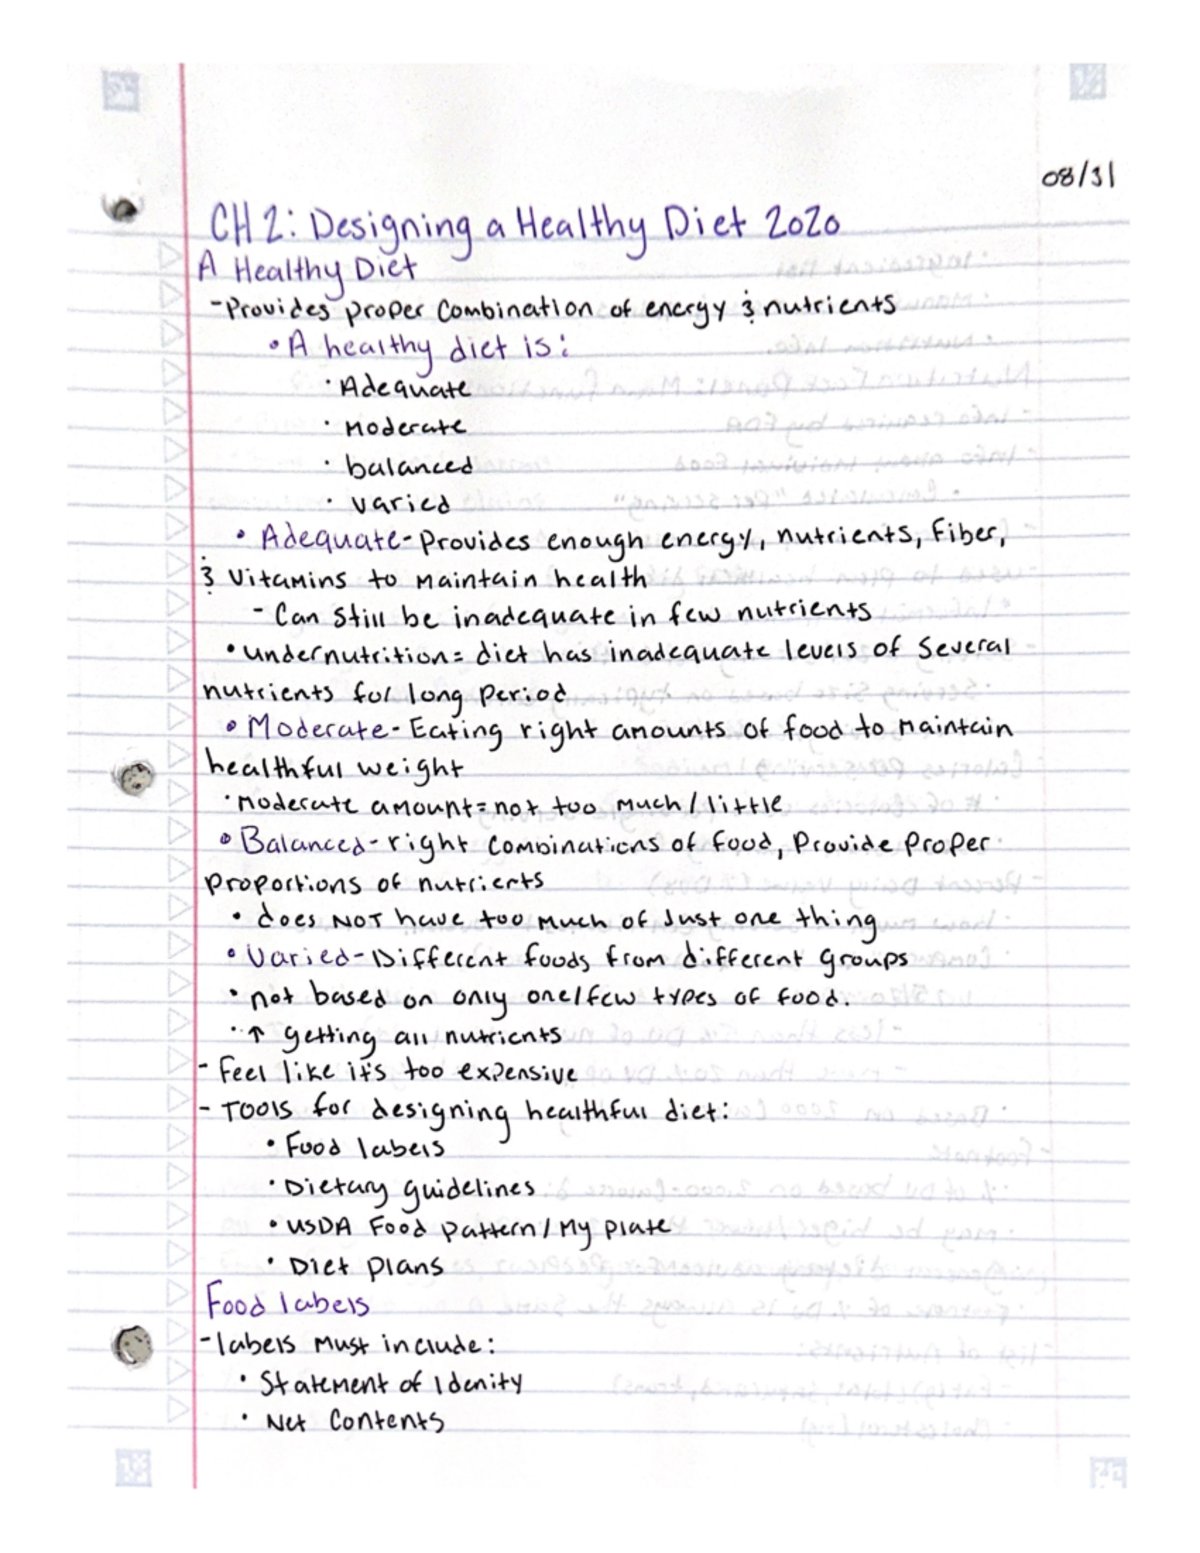 08/31
CH 2: Designing a Healthy Diet 2020
A Healthy Diet
-Provides proper combination of energy & nutrients
• A healthy diet is:
· Adequate
· Moderate
· balanced
· varied
• Adequate- Provides enough energy, nutrients, Fiber,
& Vitamins to Maintain health
- Can still be inadequate in few nutrients
• undernutrition= diet has inadequate levels of Several
nutrients for long Period
• Moderate- Eating right amounts of food to Maintain
healthful weight
· Moderate amount= not too Much/little
• Balanced- right combinations of food, Provide Proper
Proportions of nutrients
• does NOT have too Much of Just one thing
• Varied- Different foods from different groups
• not based on only one/few types of food.
· ↑ getting all nutrients
- Feel like it's too expensive
- Tools for designing healthful diet:
• Food labels
• Dietary guidelines
• USDA Food Pattern/My Plate
• Diet Plans
Food labels
-labels Must include:
• Statement of Idenity
• Net Contents